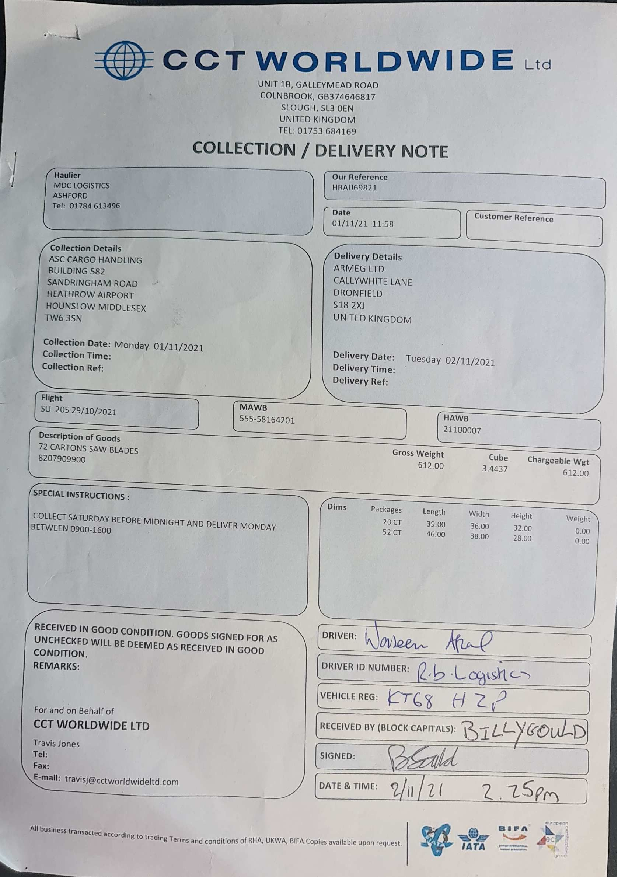 CCT WORLDWIDE Ltd
UNIT 1B, GALLEYMEAD ROAD
COLNBROOK, GB374646817
SLOUGH, SL3 0EN
UNITED KINGDOM
TEL: 01753 684169
COLLECTION / DELIVERY NOTE
Haulier
MDC LOGISTICS
ASHFORD
Tel: 01784 613496
Our Reference
Date
01/11/21 11:58
Customer Reference
Collection Details
ASC CARGO HANDLING
BUILDING 582
SANDRINGHAM ROAD
HEATHROW AIRPORT
HOUNSLOW MIDDLESEX
TW6 3SN
Collection Date: Monday 01/11/2021
Collection Time:
Collection Ref:
Delivery Details
ARMEG LTD
CALLYWHITE LANE
DRONFIELD
S18 2XJ
UNITED KINGDOM
Delivery Date: Tuesday 02/11/2021
Delivery Time:
Delivery Ref:
Flight
SU 205 29/10/2021
MAWB
555-58164201
HAWB
21100007
Description of Goods
72 CARTONS SAW BLADES
8207909900
Gross Weight
612.00
Cube
3.4437
Chargeable Wgt
612.00
SPECIAL INSTRUCTIONS :
COLLECT SATURDAY BEFORE MIDNIGHT AND DELIVER MONDAY
BETWEEN 0900-1600
Dims Packages Length Width Height Weight
20 CT 39.00 36.00 32.00 0.00
52 CT 46.00 38.00 28.00 0.00
RECEIVED IN GOOD CONDITION. GOODS SIGNED FOR AS
UNCHECKED WILL BE DEEMED AS RECEIVED IN GOOD
CONDITION.
REMARKS:
For and on Behalf of
CCT WORLDWIDE LTD
Travis Jones
Tel:
Fax:
E-mail: travisj@cctworldwideltd.com
DRIVER:
DRIVER ID NUMBER: R.b. Logistics
VEHICLE REG: KT68 HZP
RECEIVED BY (BLOCK CAPITALS): BILLY GOULD
SIGNED: B Gould
DATE & TIME: 2/11/21 2.25pm
All business transacted according to trading Terms and conditions of RHA, UKWA, BIFA Copies available upon request
IATA
BIFA